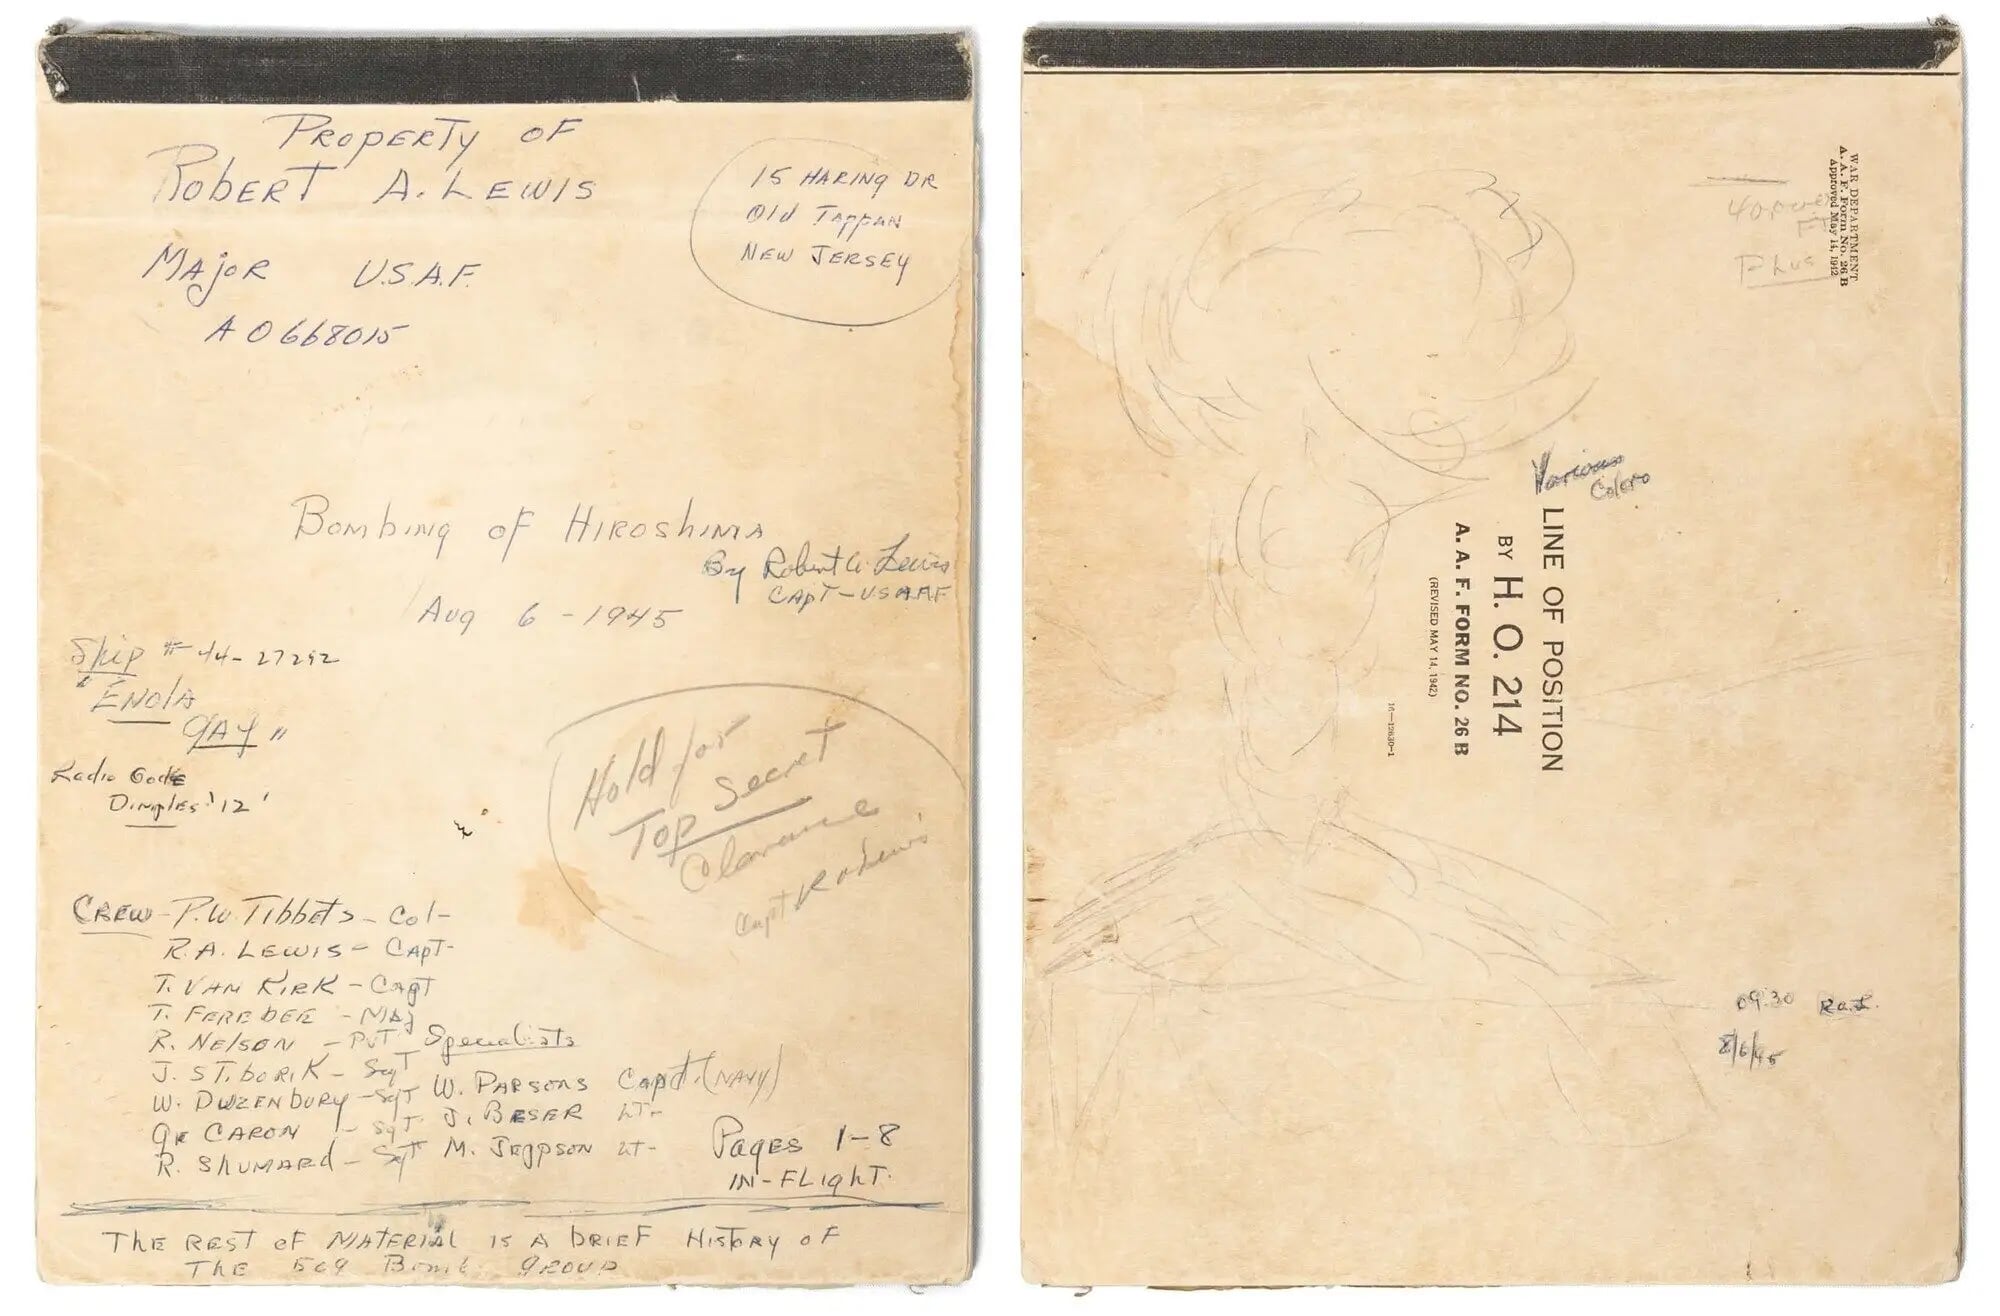 PROPERTY OF
ROBERT A. LEWIS
MAJOR U.S.A.F.
AO 668015
15 HARING DR
Old TAPPAN
NEW JERSEY
BOMBING OF HIROSHIMA
By Robert A. Lewis
CAPT - USAAF
AUG 6 - 1945
Ship # 44-27292
"ENOLA
GAY"
Radio Code
DIMPLES '12'
Hold for
TOP Secret
Clearance
Capt R A Lewis
CREW - P.W. TIBBETS - Col -
R.A. LEWIS - CAPT -
T. VAN KIRK - CAPT
T. FEREBEE - MAJ
R. NELSON - PVT
J. STIBORIK - SGT
W. DUZENBURY - SGT
GR CARON - SGT
R. SHUMARD - SGT
Specialists
W. PARSONS Capt. (NAVY)
J. BESER LT -
M. JEPPSON LT -
PAGES 1-8
IN-FLIGHT.
THE REST OF MATERIAL IS A BRIEF HISTORY OF
THE 509 BOMB GROUP
WAR DEPARTMENT
A. A. F. Form No. 26 B
Approved May 14, 1942
Plus
Various
Colors
LINE OF POSITION
BY H. O. 214
A. A. F. FORM NO. 26 B
(REVISED MAY 14, 1942)
16—12630-1
09:30 R.A.L.
8/6/45